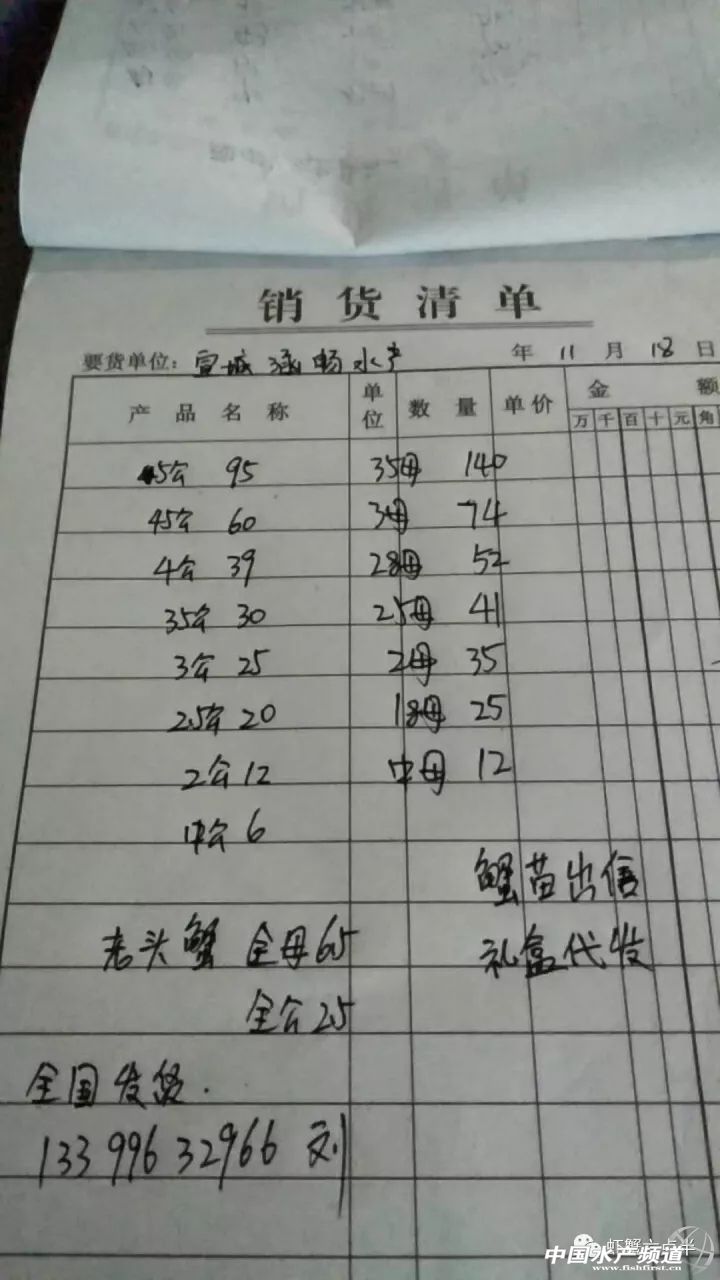 销货清单
要货单位: 宣城 涵畅水产 年 11 月 18 日
产品名称 单位 数量 单价 金额
万 千 百 十 元 角
5公 95 35母 140
45公 60 3母 74
4公 39 28母 52
35公 30 25母 41
3公 25 2母 35
25公 20 18母 25
2公 12 中母 12
中公 6
蟹苗出信
老头蟹 全母65 礼盒代发
全公25
全国发货.
133 996 32966 刘
虾蟹六点半
中国水产频道
www.fishfirst.cn